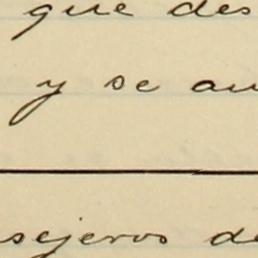 que des
y se au
sejeros de